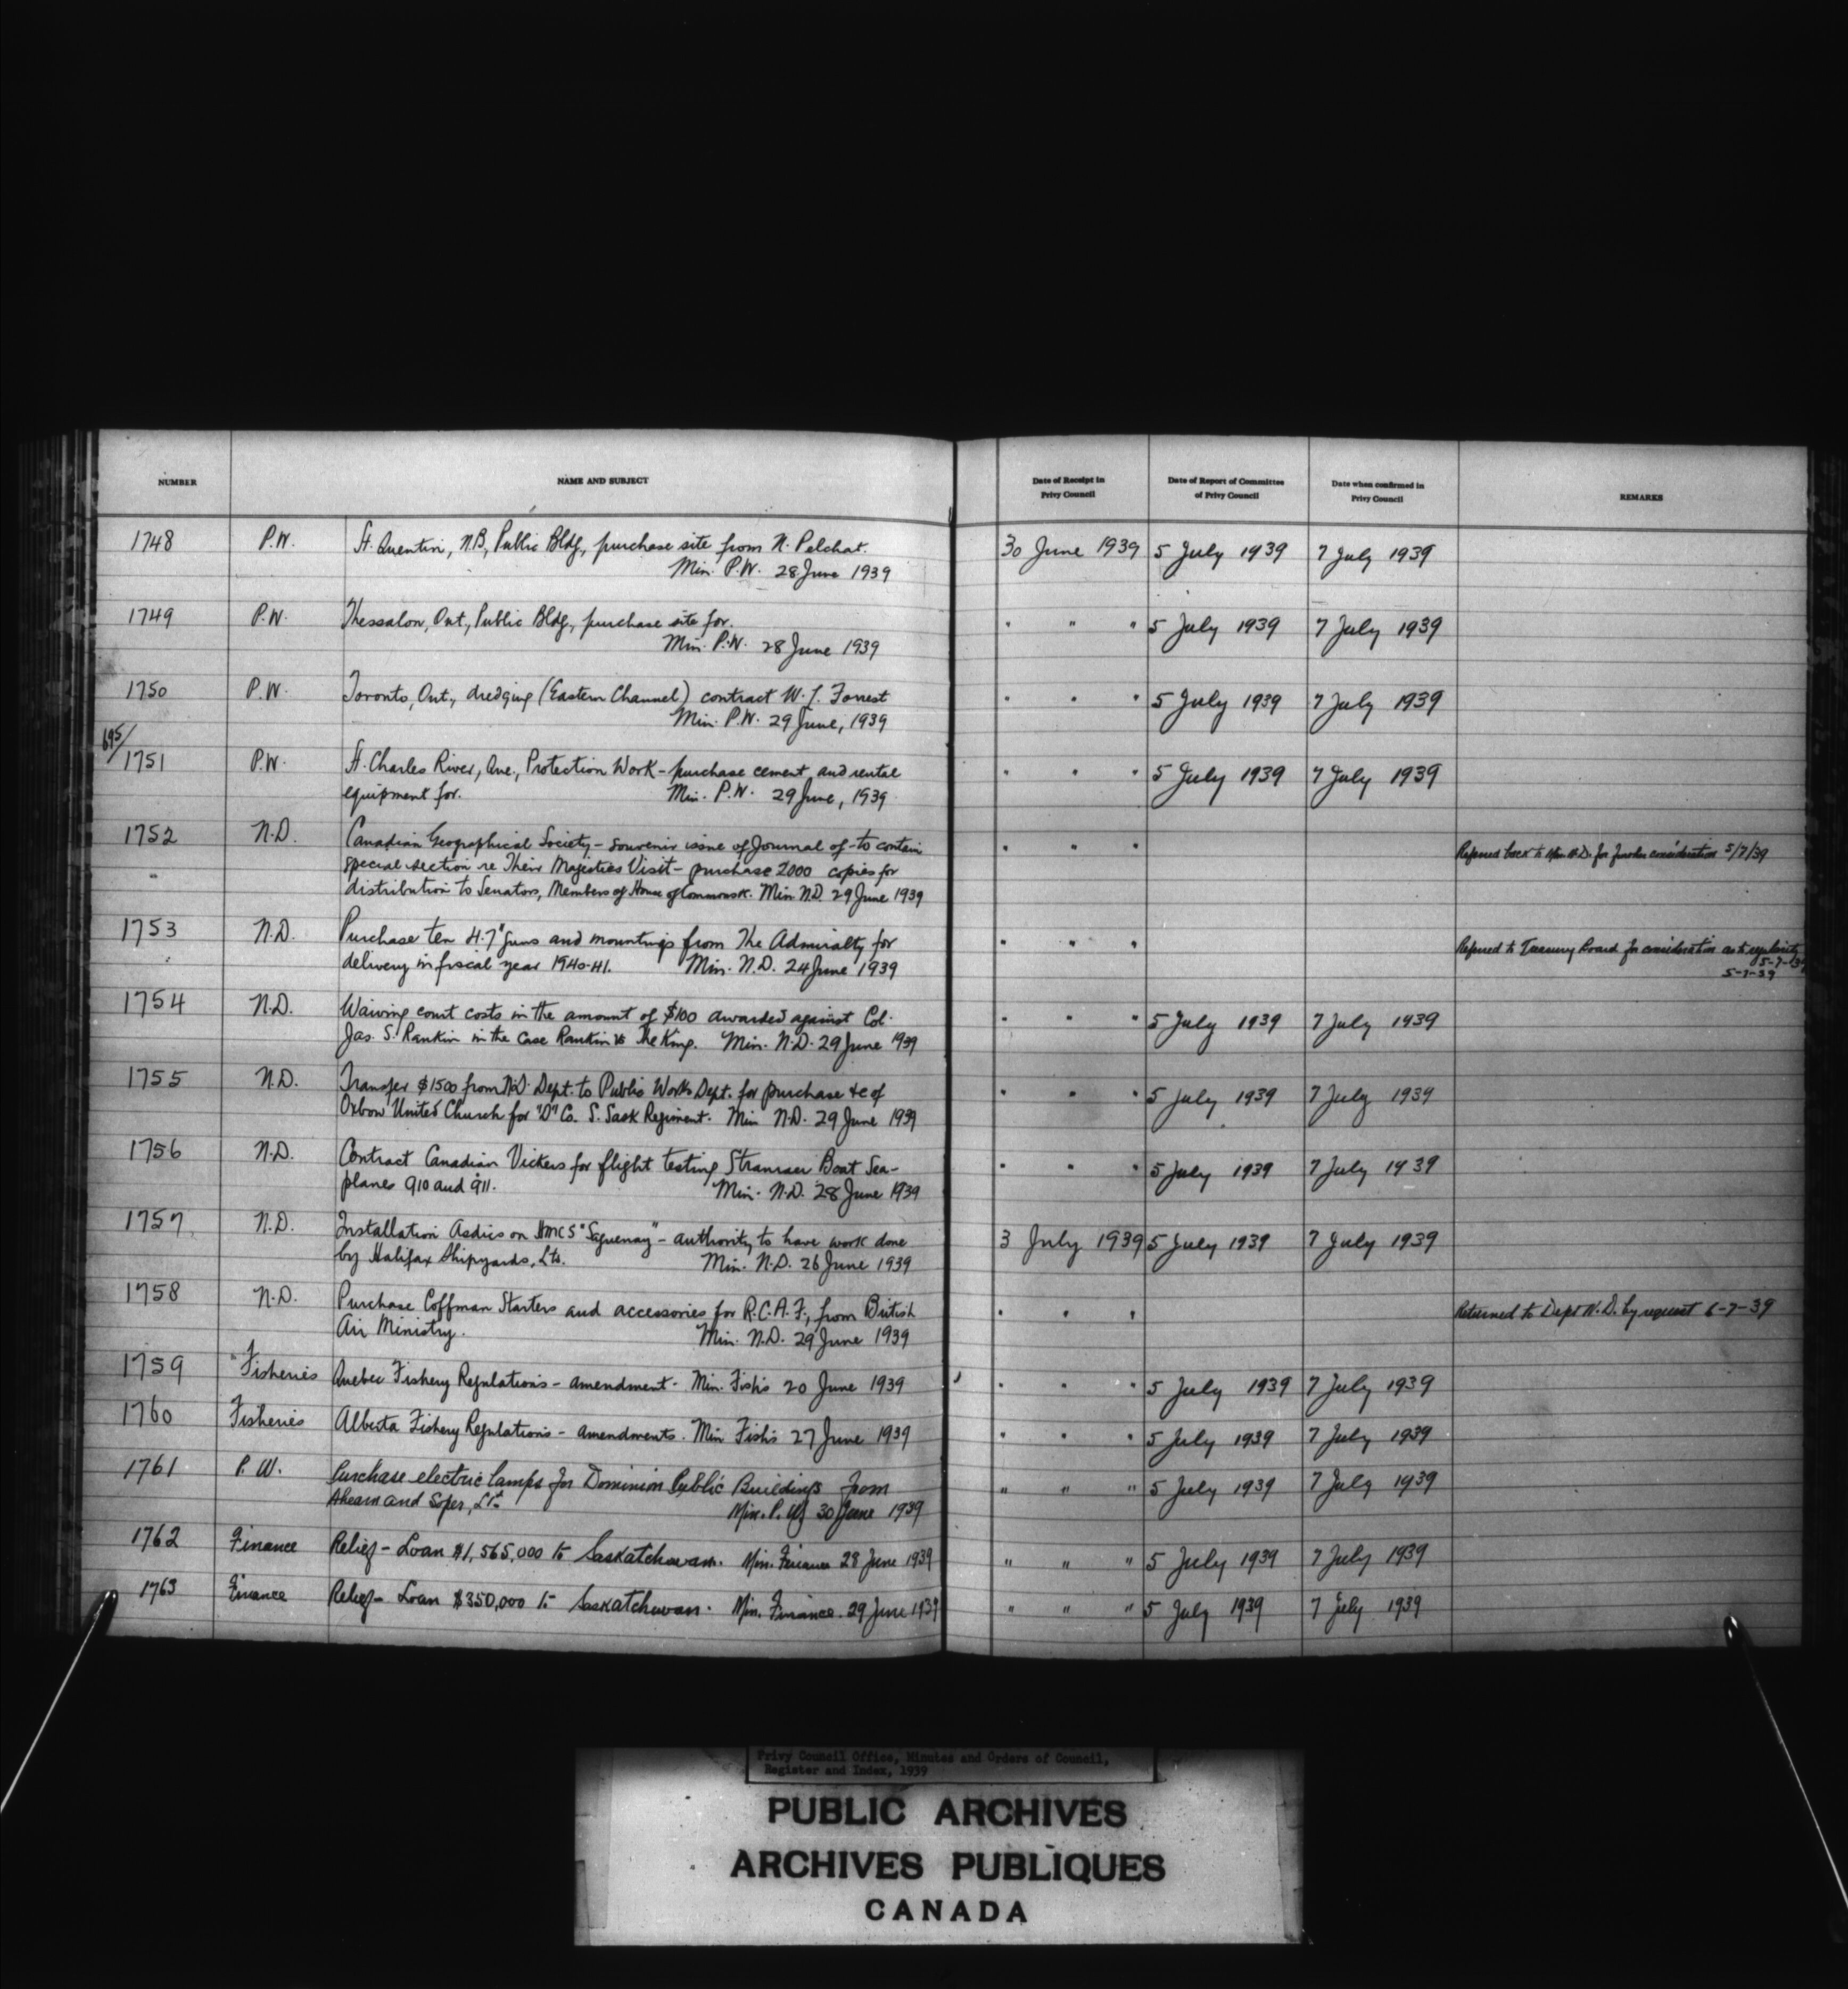 NUMBER NAME AND SUBJECT Date of Receipt in Privy Council Date of Report of Committee of Privy Council Date when confirmed in Privy Council REMARKS
1748 P.W. St. Quentin, N.B., Public Bldg., purchase site from N. Pelchat. 30 June 1939 5 July 1939 7 July 1939
Min. P.W. 28 June 1939
1749 P.W. Thessalon, Ont., Public Bldg., purchase site for. " " " 5 July 1939 7 July 1939
Min. P.W. 28 June 1939
1750 P.W. Toronto, Ont., dredging (Eastern Channel) contract W. J. Forrest " " " 5 July 1939 7 July 1939
Min. P.W. 29 June, 1939
695/
1751 P.W. St. Charles River, Que., Protection Work - purchase cement and rental " " " 5 July 1939 7 July 1939
equipment for. Min. P.W. 29 June, 1939
1752 N.D. Canadian Geographical Society - souvenir issue of Journal of - to contain " " " Referred back to Min. N.D. for further consideration 5/7/39
special section re Their Majesties Visit - purchase 2000 copies for
distribution to Senators, Members of House of Commons. Min N.D. 29 June 1939
1753 N.D. Purchase ten 4.7" guns and mountings from The Admiralty for " " " Referred to Treasury Board for consideration as to
delivery in fiscal year 1940-41. Min. N.D. 24 June 1939 5-7-39
5-7-39
1754 N.D. Waiving court costs in the amount of $100 awarded against Col. " " " 5 July 1939 7 July 1939
Jas. S. Rankin in the case Rankin vs The King. Min. N.D. 29 June 1939
1755 N.D. Transfer $1500 from N.D. Dept. to Public Works Dept. for purchase &c of " " " 5 July 1939 7 July 1939
Oxbow United Church for "D" Co. S. Sask Regiment. Min N.D. 29 June 1939
1756 N.D. Contract Canadian Vickers for flight testing Stranraer Boat Sea- " " " 5 July 1939 7 July 1939
planes 910 and 911. Min. N.D. 28 June 1939
1757 N.D. Installation Asdics on HMCS "Saguenay" - authority to have work done 3 July 1939 5 July 1939 7 July 1939
by Halifax Shipyards, Ltd. Min. N.D. 26 June 1939
1758 N.D. Purchase Coffman Starters and accessories for R.C.A.F., from British " " " Returned to Dept N.D. by request 6-7-39
Air Ministry. Min. N.D. 29 June 1939
1759 Fisheries Quebec Fishery Regulations - amendment. Min. Fish's 20 June 1939 " " " 5 July 1939 7 July 1939
1760 Fisheries Alberta Fishery Regulations - amendments. Min Fish's 27 June 1939 " " " 5 July 1939 7 July 1939
1761 P.W. Purchase electric lamps for Dominion Public Buildings from " " " 5 July 1939 7 July 1939
Ahearn and Soper, Ltd. Min. P.W. 30 June 1939
1762 Finance Relief - Loan $1,565,000 to Saskatchewan. Min. Finance 28 June 1939 " " " 5 July 1939 7 July 1939
1763 Finance Relief - Loan $350,000 to Saskatchewan. Min. Finance. 29 June 1939 " " " 5 July 1939 7 July 1939
Privy Council Office, Minutes and Orders of Council,
Register and Index, 1939
PUBLIC ARCHIVES
ARCHIVES PUBLIQUES
CANADA